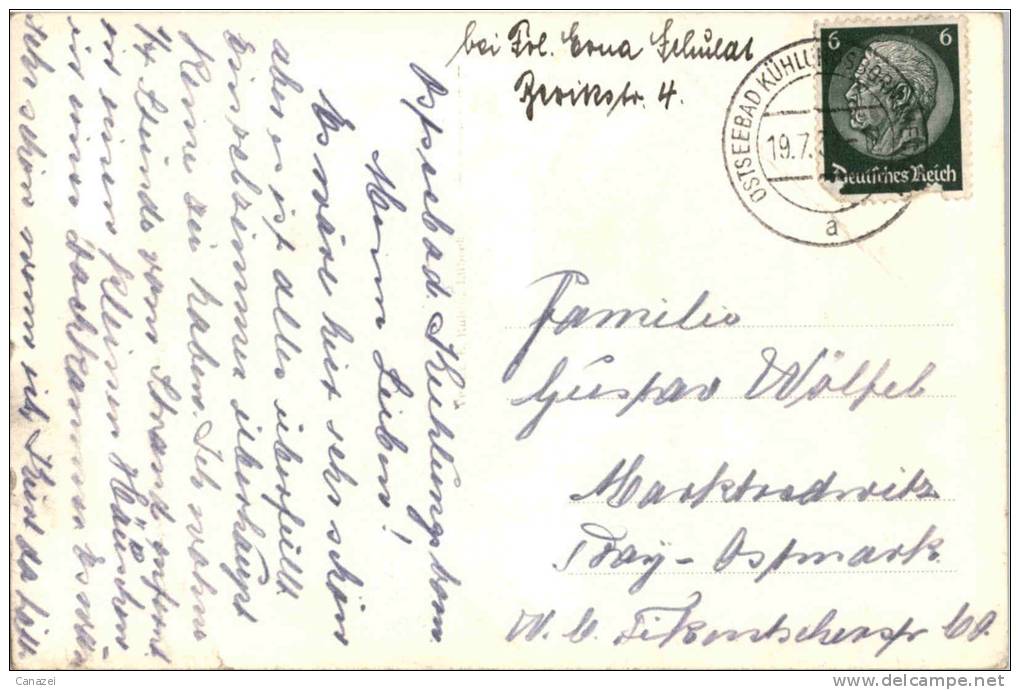 bei Frl. Erna Schulat
6 6
OSTSEEBAD KÜHLUNGSBORN
19.7.3
a
Deutsches Reich
Ostseebad. Kuehlungsborn
Meine Lieben!
Es wäre hier sehr schön
aber es ist alles überfüllt
Einzelzimmer überhaupt
keine zu haben. Ich wohne
1/4 Stunde vom Strand entfernt
in einem kleinen Häuschen
in einer Dachkammer. Es wäre
sehr schön wenn nicht
Familie
Gustav Wölfel
Marktredwitz
Bay-Ostmark
Canazei
www.delcampe.net